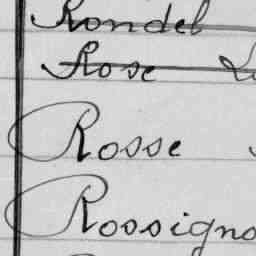 Rondel
Rose
Rosse
Rossigno